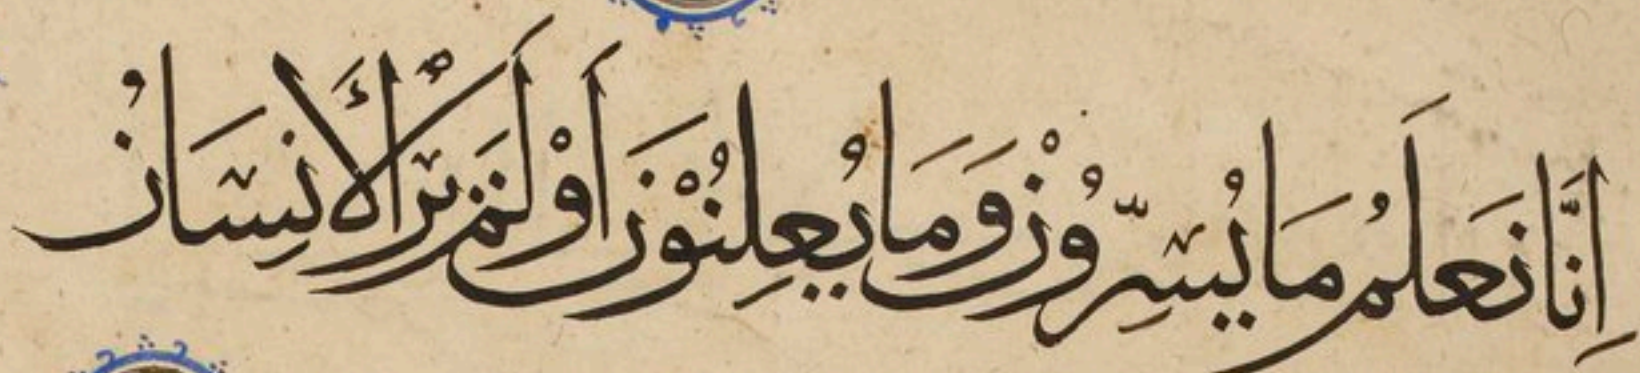 اِنَّا نَعلَمُ مَا يُسِرّوُنْ وَمَا يُعلِنُوْنَ اَوْلَمَ يَرَ أَلاِنسَانُ